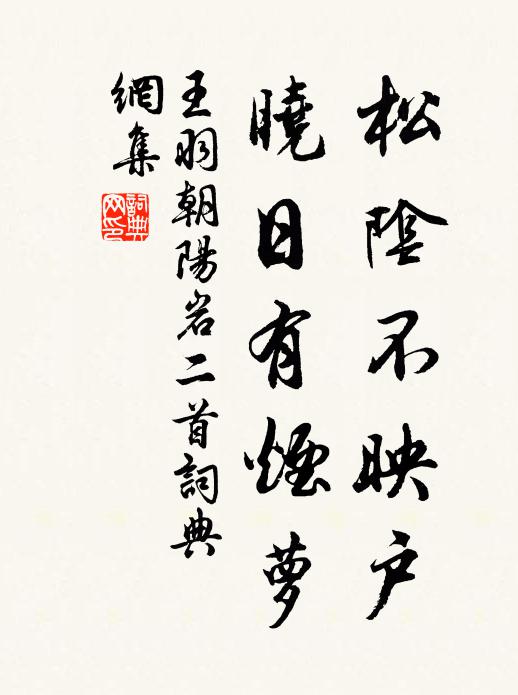 松陰不映户
曉日有煙夢
王羽朝陽岩二首詞典
網集
詞典
网印